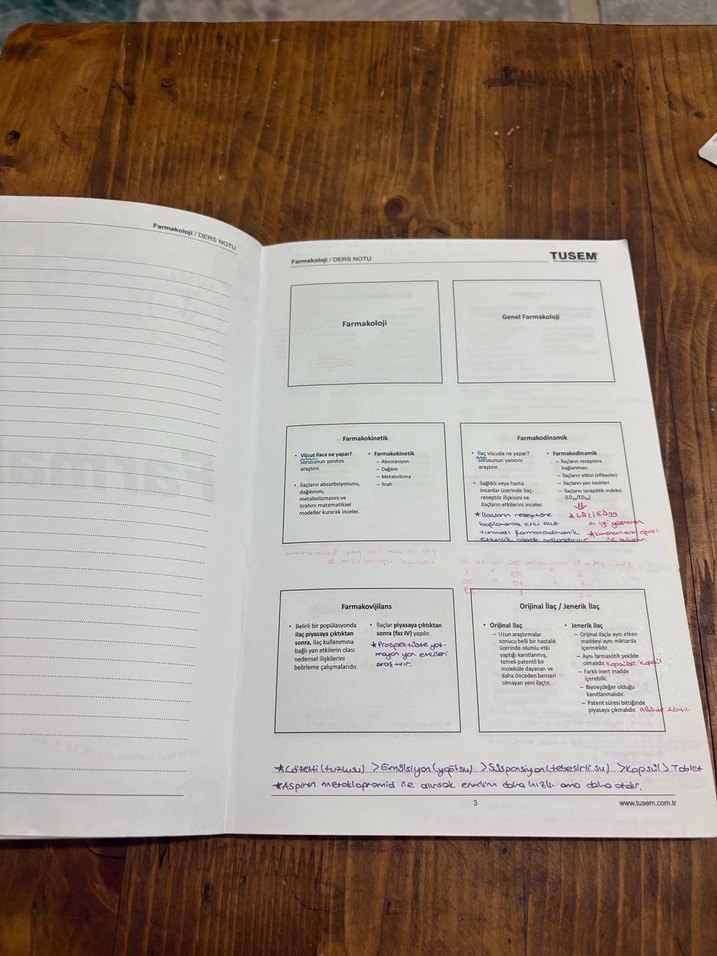 Farmakoloji / DERS NOTU
Farmakoloji / DERS NOTU
TUSEM
Farmakoloji
Genel Farmakoloji
Farmakokinetik
• Vücut ilaca ne yapar?
sorusunun yanıtını
araştırır.
• İlaçların absorbsiyonunu,
dağılımını,
metabolizmasını ve
itrahını matematiksel
modeller kurarak inceler.
• Farmakokinetik
– Absorpsiyon
– Dağılım
– Metabolizma
– İtrah
Farmakodinamik
• İlaç vücuda ne yapar?
sorusunun yanıtını
araştırır.
• Sağlıklı veya hasta
insanlar üzerinde ilaç-
reseptör ilişkisini ve
ilaçların etkilerini inceler.
* İlaçların reseptöre
bağlanarak etki
farmakodinamik
• Farmakodinamik
– İlaçların reseptöre
bağlanması
– İlaçların etkisi (efikasite)
– İlaçların yan tesirleri
– İlaçların terapötik indeksi
(LD50/ED50)
* LD1/ED99
en iyi gösteren
Farmakovijilans
• Belirli bir popülasyonda
ilaç piyasaya çıktıktan
sonra, ilaç kullanımına
bağlı yan etkilerin olası
nedensel ilişkilerini
belirleme çalışmalarıdır.
• İlaçlar piyasaya çıktıktan
sonra (faz IV) yapılır.
* Prospektüste yaz-
mayan yan etkileri
araştırır.
Orijinal İlaç / Jenerik İlaç
• Orijinal ilaç
– Uzun araştırmalar
sonucu belli bir hastalık
üzerinde olumlu etki
yaptığı kanıtlanmış,
temeli patentli bir
moleküle dayanan ve
daha önceden benzeri
olmayan yeni ilaçtır.
• Jenerik ilaç
– Orijinal ilaçla aynı etken
maddeyi aynı miktarda
içermelidir.
– Aynı farmasötik şekilde
olmalıdır. kapsülse kapsül
– Farklı inert madde
içerebilir.
– Biyoeşdeğer olduğu
kanıtlanmalıdır.
– Patent süresi bittiğinde
piyasaya çıkmalıdır. ABD'de 20 yıl.
* Çözelti (tuzlusu) > Emülsiyon (yağlı su) > Süspansiyon (tebeşirli su) > Kapsül > Tablet
* Aspirin metoklopramid ile alınırsak emilim daha hızlı ama daha
3
www.tusem.com.tr